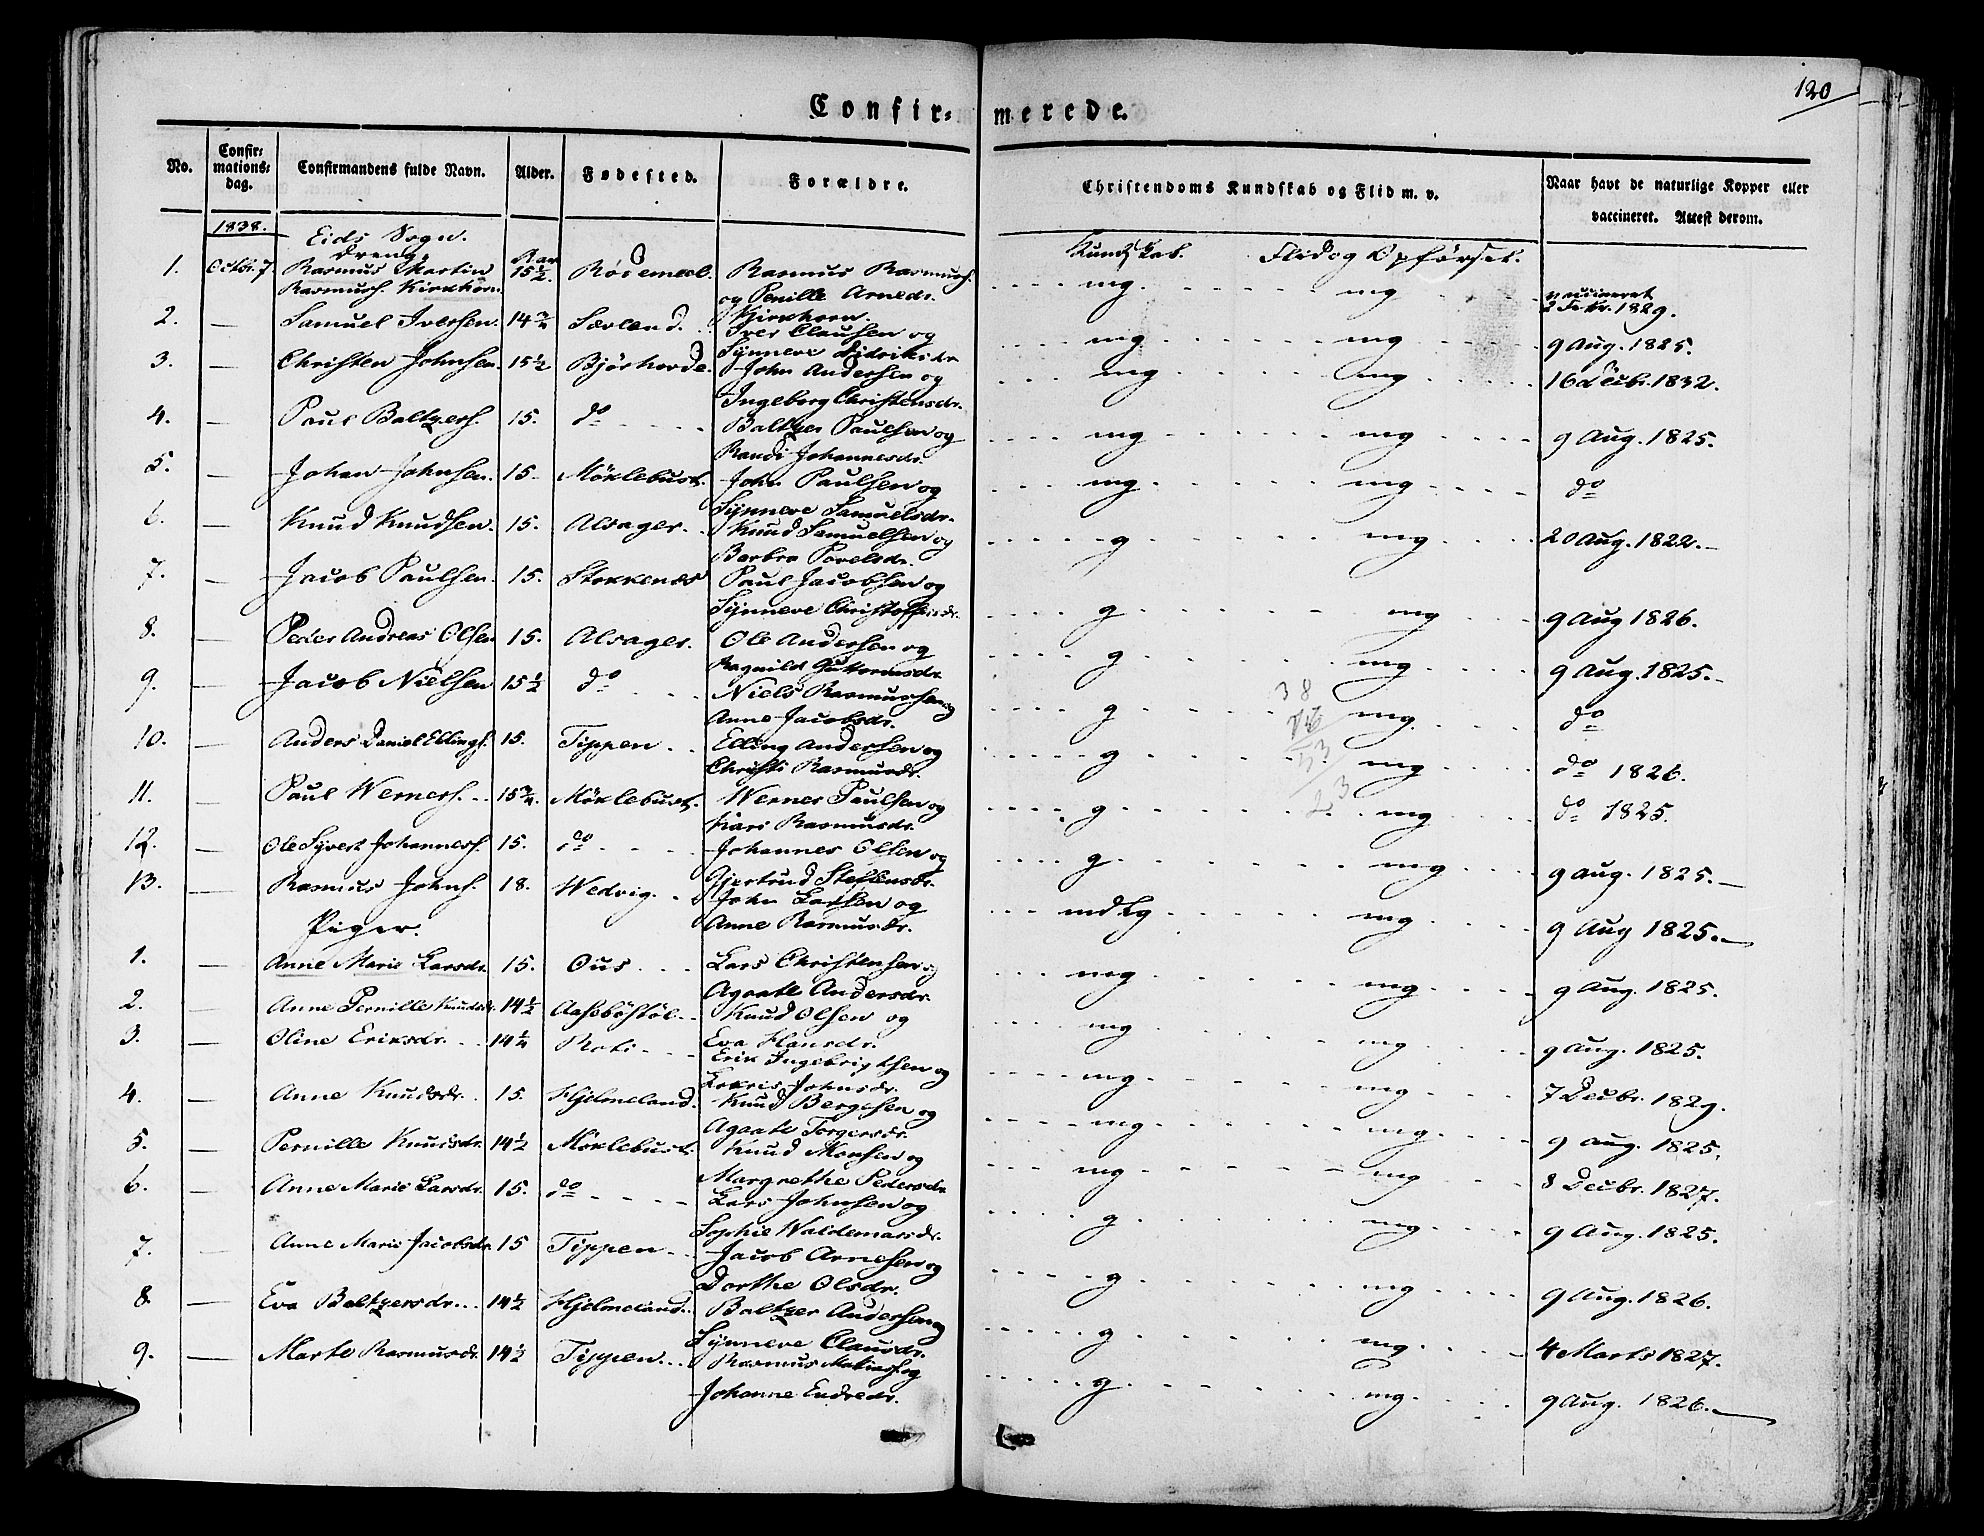 120
Confir= merede.
No. Confir= mations= dag. Confirmandens fulde Navn. Alder. Fødested. Forældre. Christendoms Kundskab og Flid m. v. Naar havt de naturlige Kopper eller vaccineret. Attest derom.
1838. Eids Sogn.
Drenge Kundskab. Flid og Opførsel.
1. Octbr. 7. Rasmus Martin 15½ Rødemeel. Rasmus Rasmuss. mg mg vaccineret
Rasmuss. Kirkhorn og Penille Arneds. 1829.
Kirkhorn.
2. — Samuel Iversen. 14 Sævland. Iver Clausen og mg mg 9 Aug. 1825.
Synneve Didriksdr
3. — Christen Johnsen. 15½ Bjørhovde. John Andersen og mg mg 16 Decbr. 1832.
Ingeborg Christensdr.
4. — Paul Baltzers. 15. do Baltzer Paulsen og mg mg 9 Aug. 1825.
Randi Johannesdr.
5. — Johan Johnsen. 15. Möklebust. John Paulsen og mg mg do
Synneve Samuelsdr.
6. — Knud Knudsen. 15. Alsager. Knud Samuelsen og g mg 20 Aug. 1822.—
Barbro Povelsdr.
7. — Jacob Paulsen. 15. Stokkenæs Paul Jacobsen og g mg 9 Aug 1826.
Synneve Christoffersdr.
8. — Peder Andreas Olsen 15. Alsager. Ole Andersen og g mg 9 Aug. 1825.—
Ragnild Guttormsdr.
9. — Jacob Nielsen 15½ do Niels Rasmussen og g mg do
Anne Jacobsdr.
38
10. — Anders Daniel Ellings. 15. Tippen Elling Andersen og g mg do 1826.
Christi Rasmusdr.
11. — Paul Werners. 15¾. Möklebust. Werner Paulsen og g mg do 1825.
Kari Rasmusdr.
12. — Ole Syvert Johanness. 15. do Johannes Olsen og g mg 9 Aug. 1825.—
Gjertrud Steffensdr.
13. — Rasmus Johns. 18. Wedvig. John Larsen og mdlg mg 9 Aug 1825.—
Anne Rasmusdr.
Piger.
1. — Anne Marie Larsdr. 15. Ous Lars Christensen og mg mg 9 Aug. 1825.
Agaate Andersdr.
2. — Anne Pernille Knudsdr. 14½ Aasebøstøl Knud Olsen og mg mg 9 Aug. 1825.
Eva Hansdr.
3. — Oline Eriksdr. 14¼ Roti Erik Ingebrigtsen og mg mg 7 Decbr. 1829.
Johnsdr.
4. — Anne Knudsdr. 15. Hjelmeland. Knud Bergesen og mg mg 9 Aug. 1825.
Agaate Torgersdr.
5. — Pernille Knudsdr. 14½ Möklebust Knud Monsen og mg mg 8 Decbr. 1827.
Margrethe Pedersdr
6. — Anne Marie Larsdr. 15. do Lars Johnsen og g mg 9 Aug. 1825.
Sophie Waldemarsdr.
7. — Anne Marie Jacobsdr. 15 Tippen Jacob Arnesen og g mg 9 Aug. 1826.
Dorthe Olsdr.
8. — Eva Baltzersdr. 14½ Hjelmeland. Baltzer Andersen og g mg 4 Marts 1827.
Synneve Clausdr.
9. — Marte Rasmusdr. 14½ Tippen. Rasmus Matias. og g mg 9 Aug. 1826.—
Johanne Endredr.